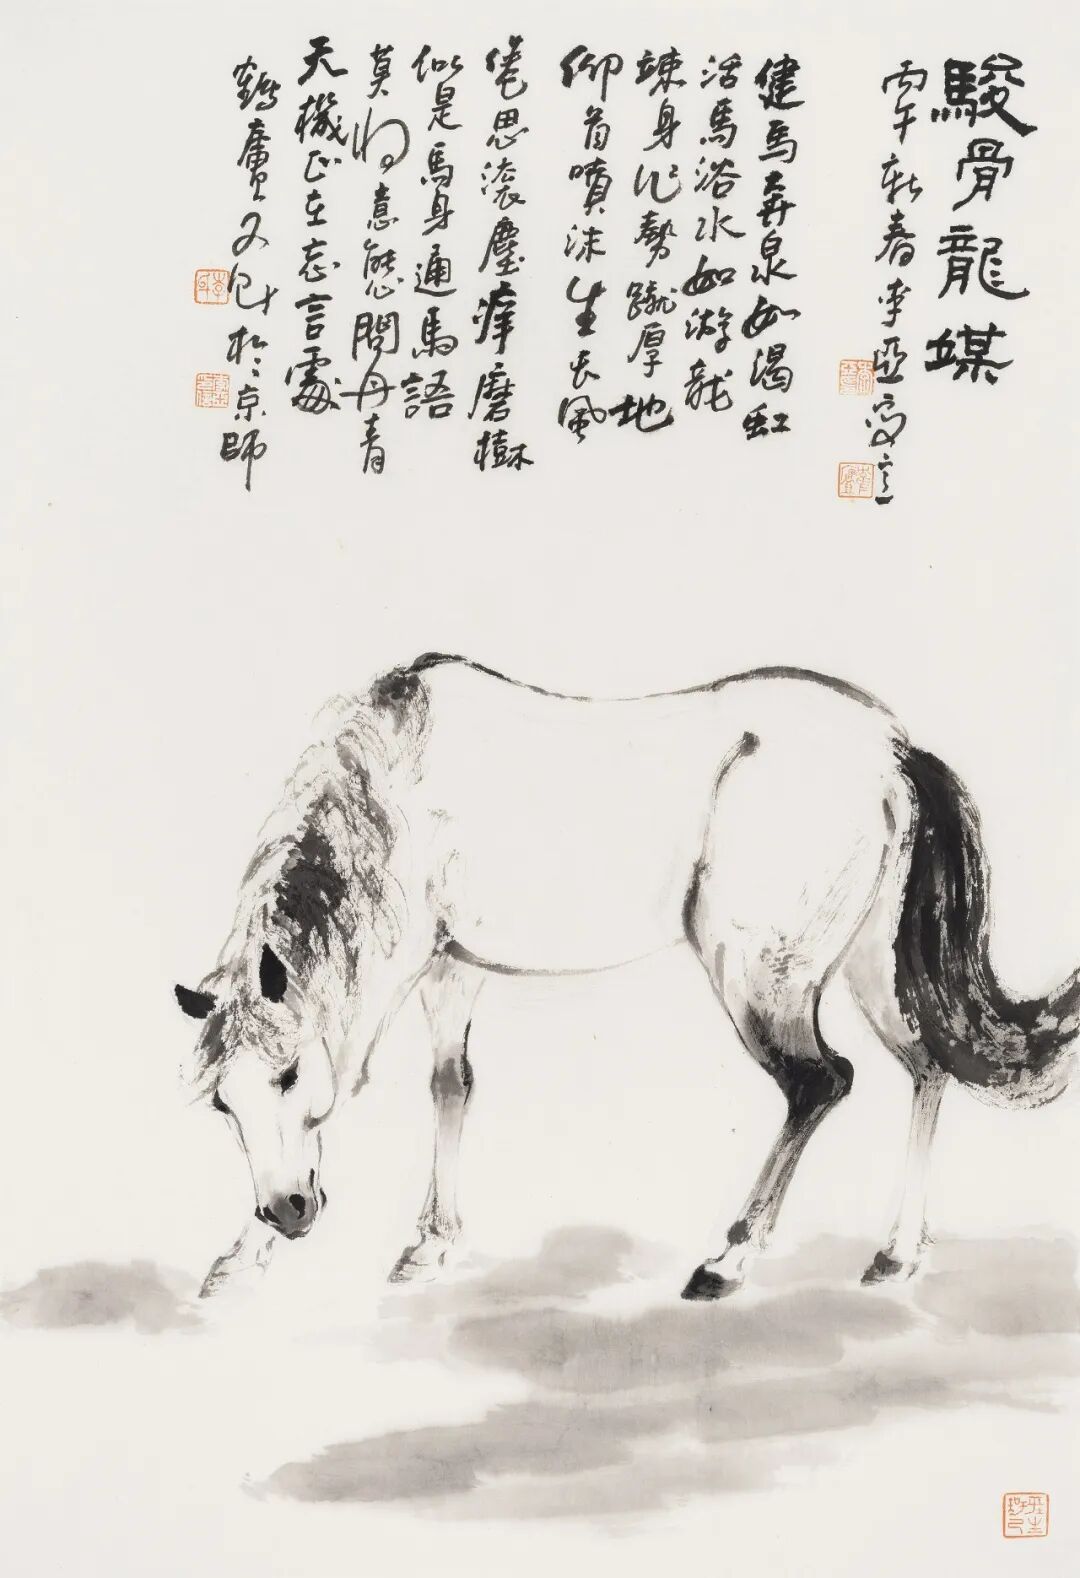 駿骨龍媒
丙午新春李亞写意
健馬奔泉如渴虹
活馬浴水如游龍
竦身作勢蹴厚地
仰首噴沫生長風
倦思滚塵痒磨樹
似是馬身通馬語
莫将意態問丹青
天機正在忘言處
鶴廬又記於京師